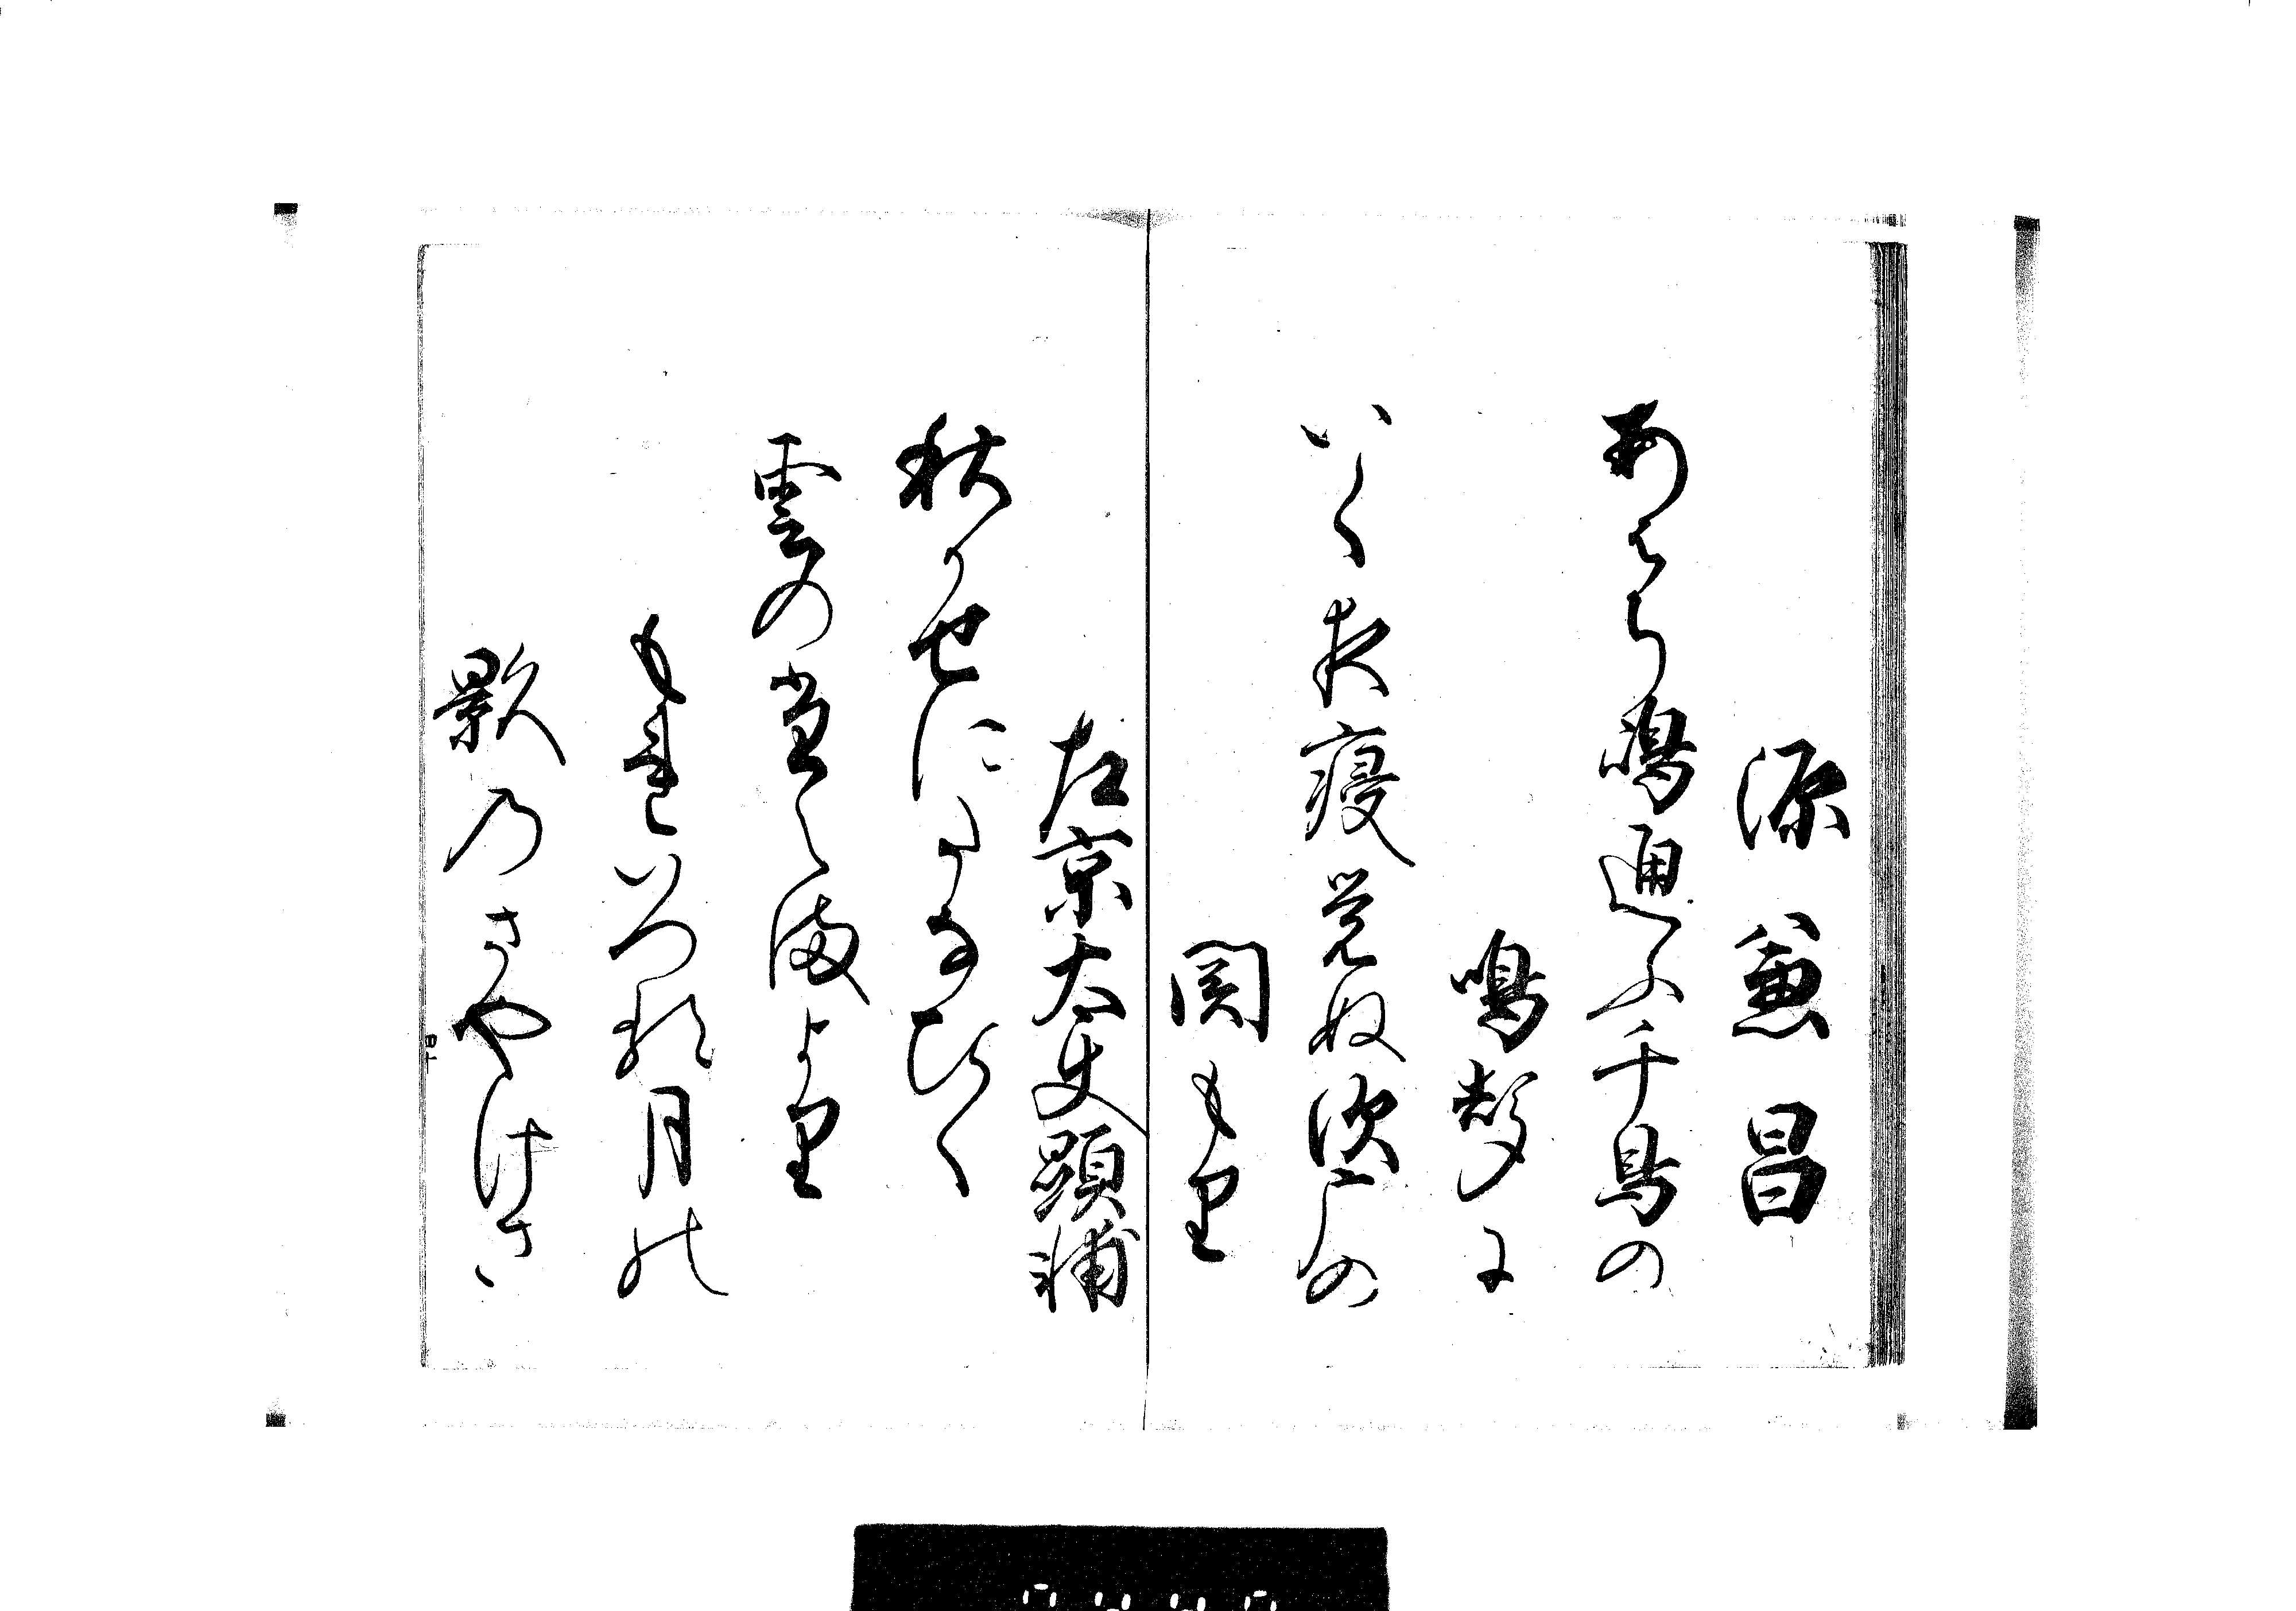 源兼昌
あはち嶋通ふ千鳥の
鳴声に
いく夜寝覚ぬ須广の
関もり
左京大夫顕輔
秋かせにたなひく
雲のたえまより
もれいつる月の
影のさやけさ
四十